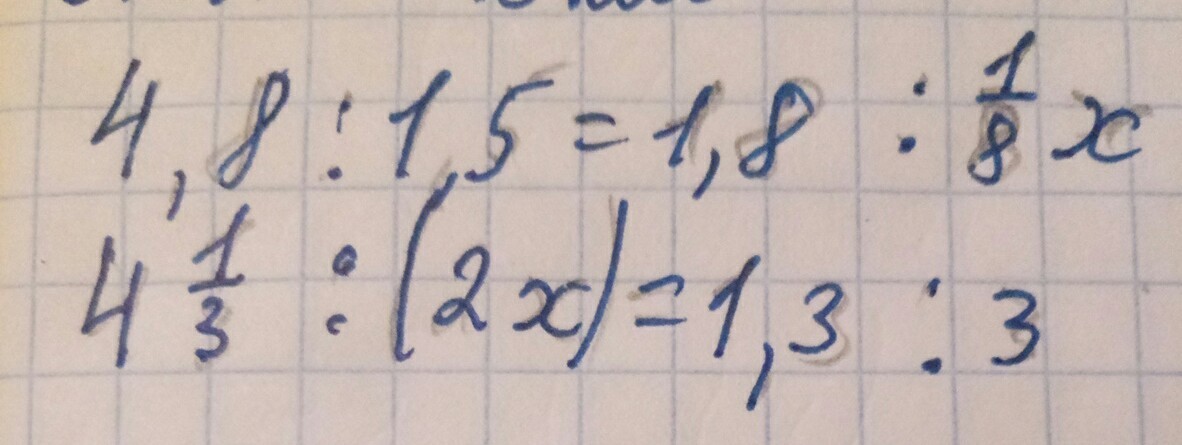 4,8 : 1,5 = 1,8 : 1/8 x
4 1/3 : (2x) = 1,3 : 3